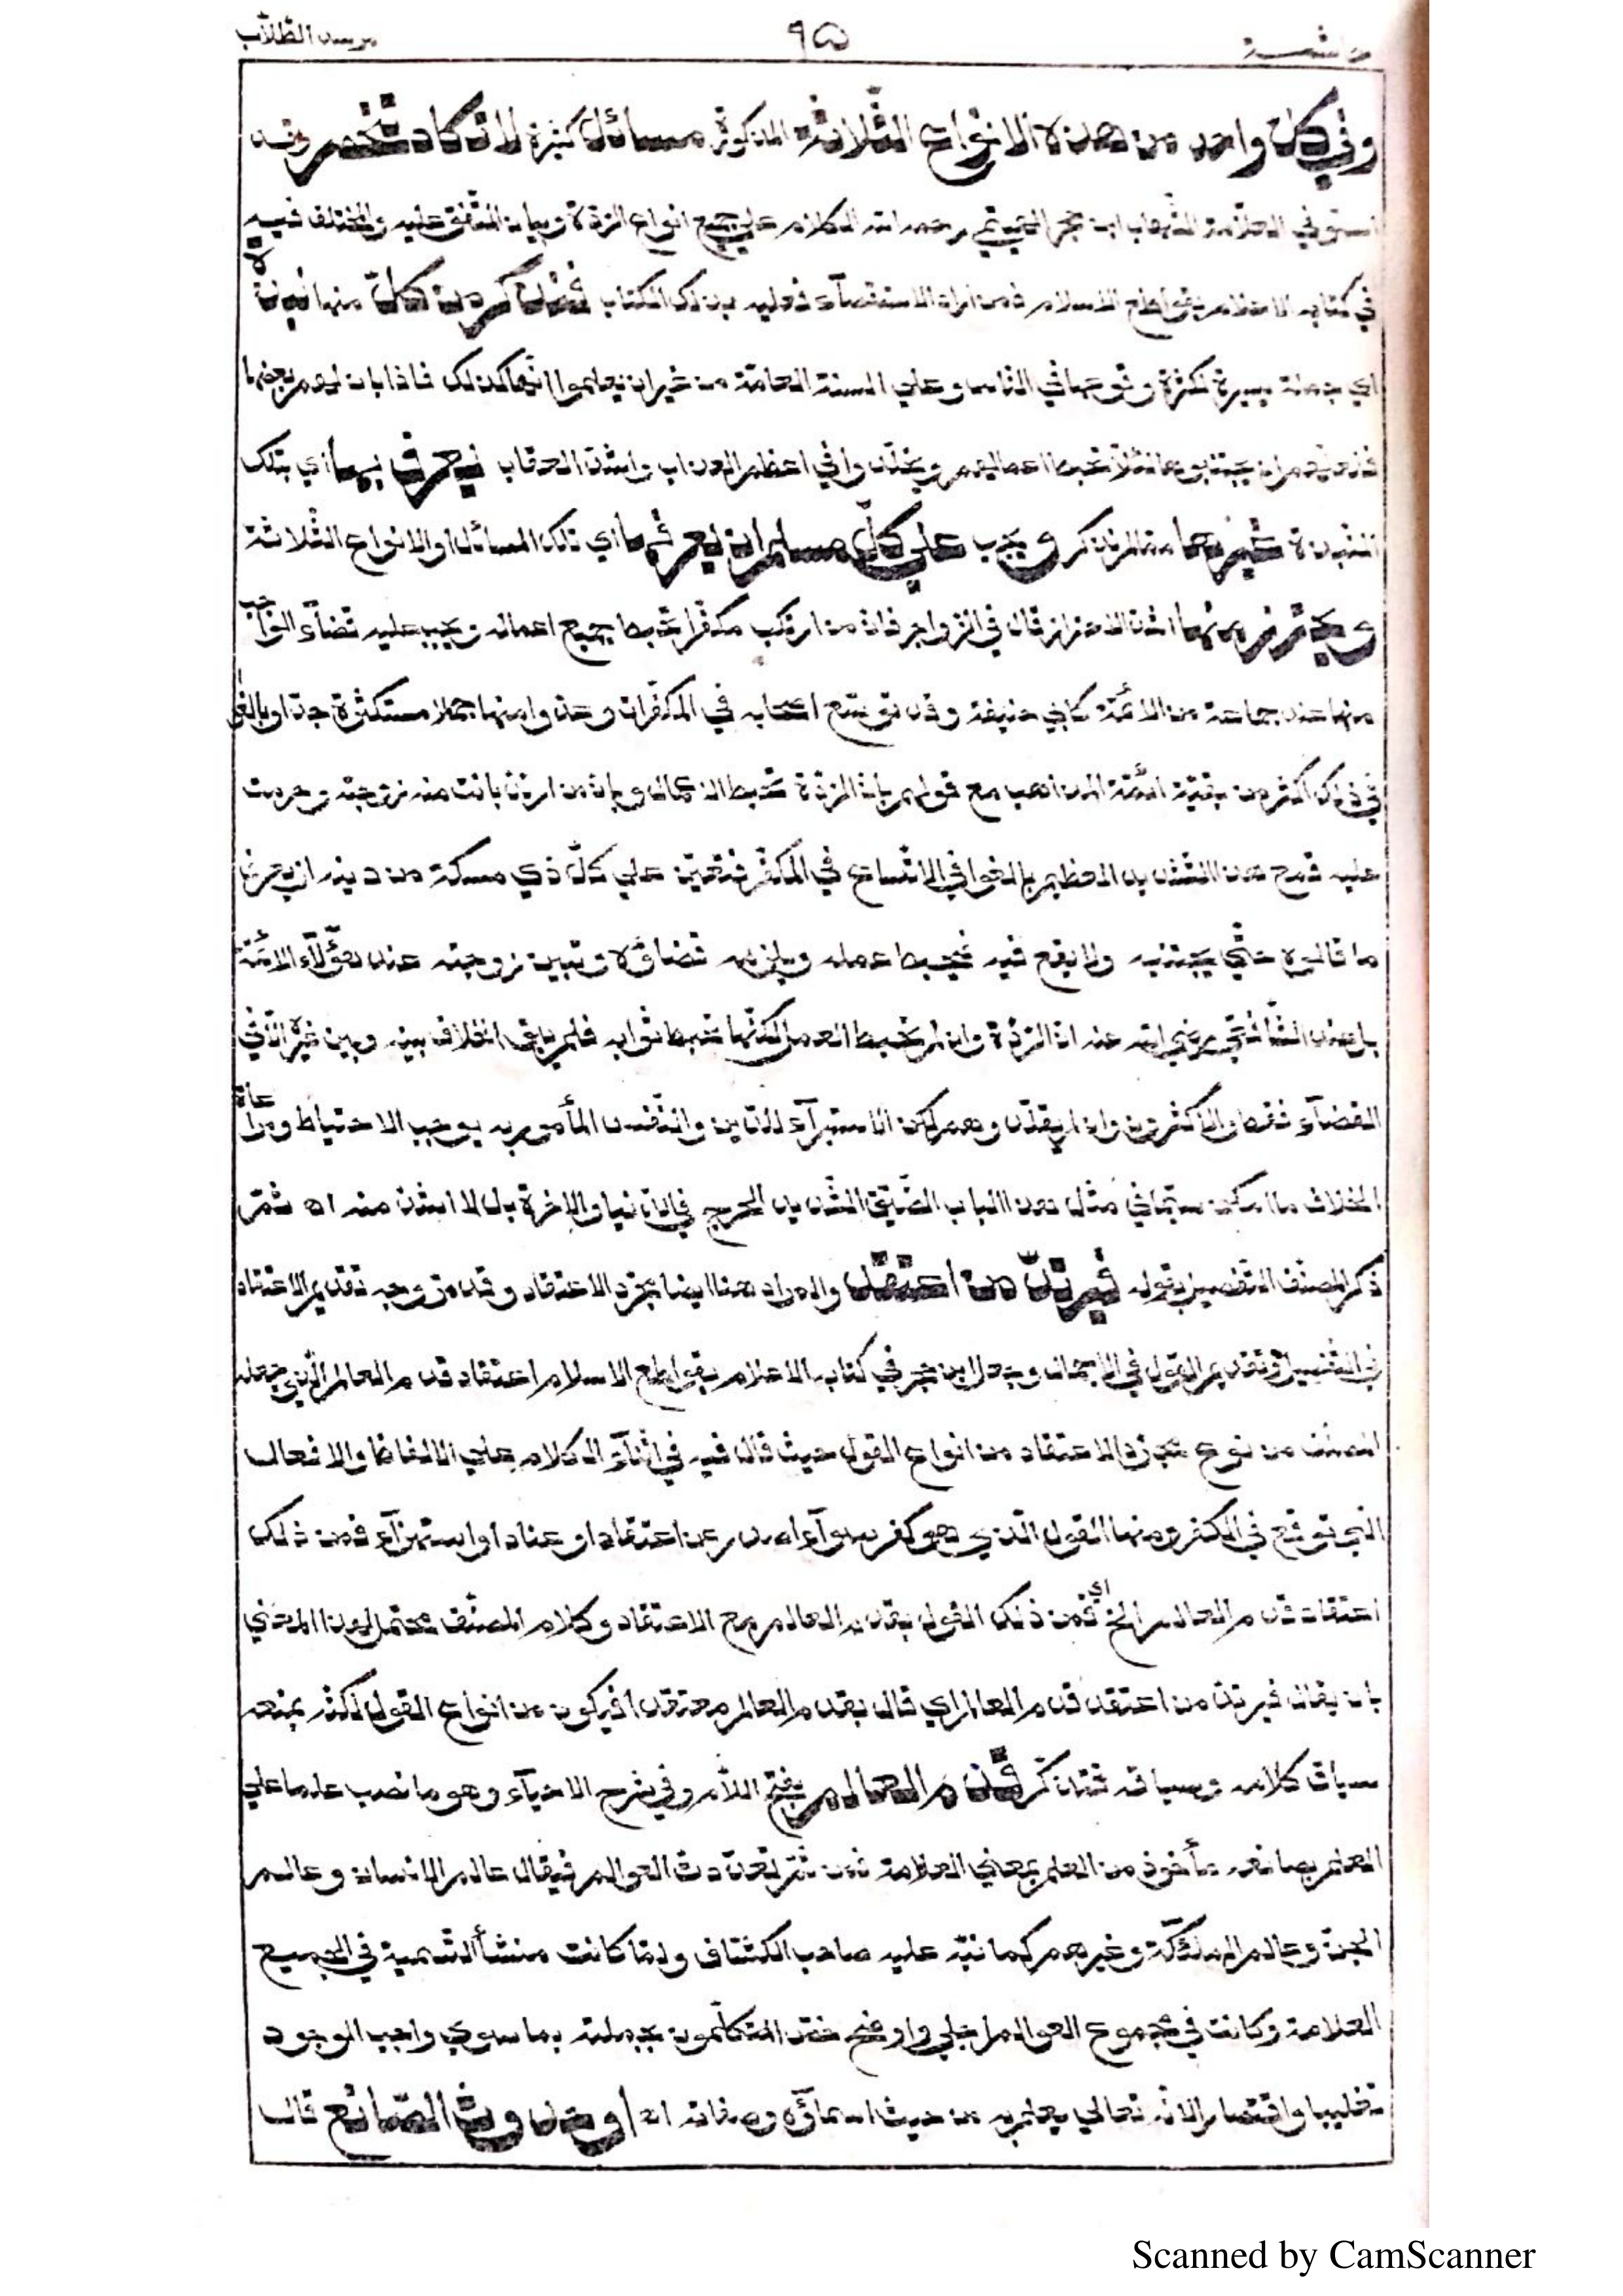 مرسد الطلاب ٩٥ حاشية
وفي كل واحد من هذه الانواع الثلاثة المذكورة مسائل كثيرة لا تكاد تنحصر وقد
استوفي العلامة الشهاب ابن حجر الهيتمي رحمه الله الكلام علي جميع انواع الردة وبيان المتفق عليه والمختلف فيه
في كتابه الاعلام بقواطع الاسلام فمن اراد الاستقصآء فعليه بذلك الكتاب فنذكر من كل منها نبذة
اي جملة يسيرة لكثرة وقوعها في الناس وعلي السنة العامة من غير ان يعلموا انها كذلك فاذا بان لهم بعضها
فلعلهم ان يجتنبوها لئلا تحبط اعمالهم ويخلدوا في اعظم العذاب واشد العقاب ليعرف بها اي بتلك
النبذة غيرها مما لم نذكر ويجب علي كل مسلم ان يعرفها اي تلك المسائل او الانواع الثلاثة
ويحترز منها اشد الاحتراز قال في الزواجر فان من ارتكب مكفرا تحبط جميع اعماله ويجب عليه قضآء الواجب
منها عند جماعة من الائمة كابي حنيفة وقد توسع اصحابه في المكفرات وعدوا منها جملا مستكثرة جدا وبالغوا
في ذلك اكثر من بقية ائمة المذاهب مع قولهم بان الردة تحبط الاعمال وبان من ارتد بانت منه زوجته وحرمت
عليه فمع هذا التشديد العظيم بالغوا في الاتساع في المكفر فتعين علي كل ذي مسكة من دينه ان يعرف
ما قالوه حتي يجتنبه ولا يقع فيه فيحبط عمله ويلزمه قضاؤه وتبين زوجته عند هؤلآء الائمة
بل عند الشافعي رضي الله عنه ان الردة وان لم تحبط العمل لكنها تحبط ثوابه فلم يبق الخلاف بينه وبين غيره الا في
القضآء فقط والاكثرون وان لم يقلدوهم لكن الاستبرآء للدين والنفس المأمور به يوجب الاحتياط ومراعاة
الخلاف ما امكن سيما في مثل هذا الباب الضيق الشديد الحرج في الدنيا والاخرة بل لا اشد منه اه ثم
ذكر المصنف التفصيل بقوله فيرتد من اعتقد والمراد هنا ايضا مجرد الاعتقاد وقد مر وجه تقديم الاعتقاد
في التفصيل وتقديم القول في الاجمال وجعل ابن حجر في كتابه الاعلام بقواطع الاسلام اعتقاد قدم العالم الذي جعله
المصنف من نوع مجرد الاعتقاد من انواع القول حيث قال فيه في اثنآء الكلام علي الالفاظ والافعال
التي توقع في الكفر ومنها القول الذي هو كفر سوآء اصدر عن اعتقاد او عناد او استهزآء فمن ذلك
اعتقاد قدم العالم الخ اي فمن ذلك القول بقدم العالم مع الاعتقاد وكلام المصنف محتمل لهذا المعني
بان يقال فيرتد من اعتقد قدم العالم اي قال بقدم العالم معتقدا فيكون من انواع القول لكن يمنعه
سياق كلامه وسباقه فتذكر قدم العالم بفتح اللام وفي شرح الاحيآء وهو ما نصب علما علي
العلم بصانعه مأخوذ من العلم بمعني العلامة فمن ثم تعددت العوالم فيقال عالم الانسان وعالم
الجن وعالم الملائكة وغيرهم كما نبه عليه صاحب الكشاف ولما كانت منشأ التسمية في الجميع
العلامة وكانت في مجموع العوالم اجلي واوضح خصه المتكلمون بجملته بما سوي واجب الوجود
تغليبا واقتصارا لانه تعالي يعلم به من حيث اسماؤه وصفاته اه او حدوث الصانع قال
Scanned by CamScanner